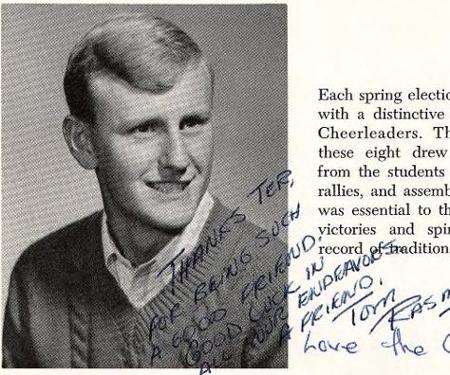 Each spring electio
with a distinctive
Cheerleaders. Th
these eight drew
from the students
rallies, and assemb
was essential to th
victories and spir
record of tradition
THANKS TER,
FOR BEING SUCH
A GOOD FRIEND.
GOOD LUCK IN
ALL YOUR ENDEAVORS.
A FRIEND,
TOM RASM
Love the C